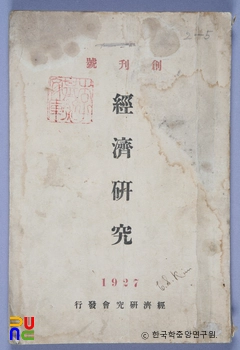 245
號刊創
經濟研究
1927
行發會究研濟經
ⓒ한국학중앙연구원